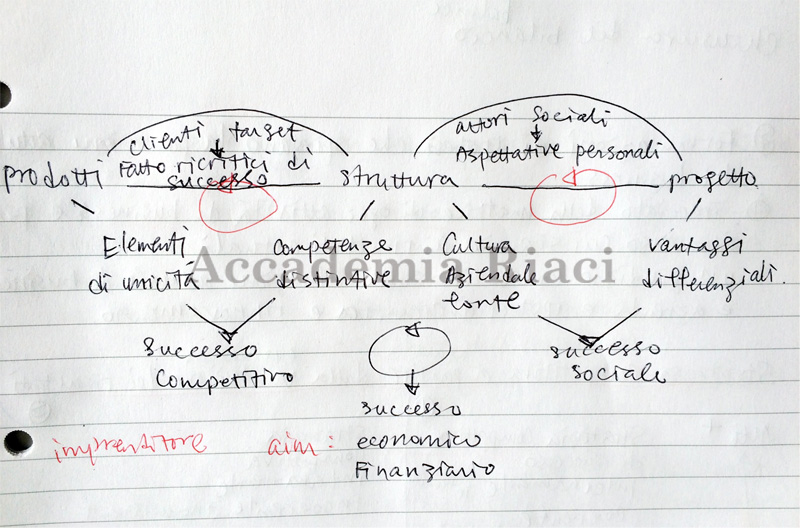 clienti target
Fatto ricritici di
successo
attori sociali
Aspettative personali
prodotti
struttura
progetto
Elementi
di unicità
Competenze
distintive
Cultura
Aziendale
forte
vantaggi
differenziali.
Accademia Riaci
successo
Competitivo
successo
sociale
successo
economico
Finanziario
imprenditore
aim: